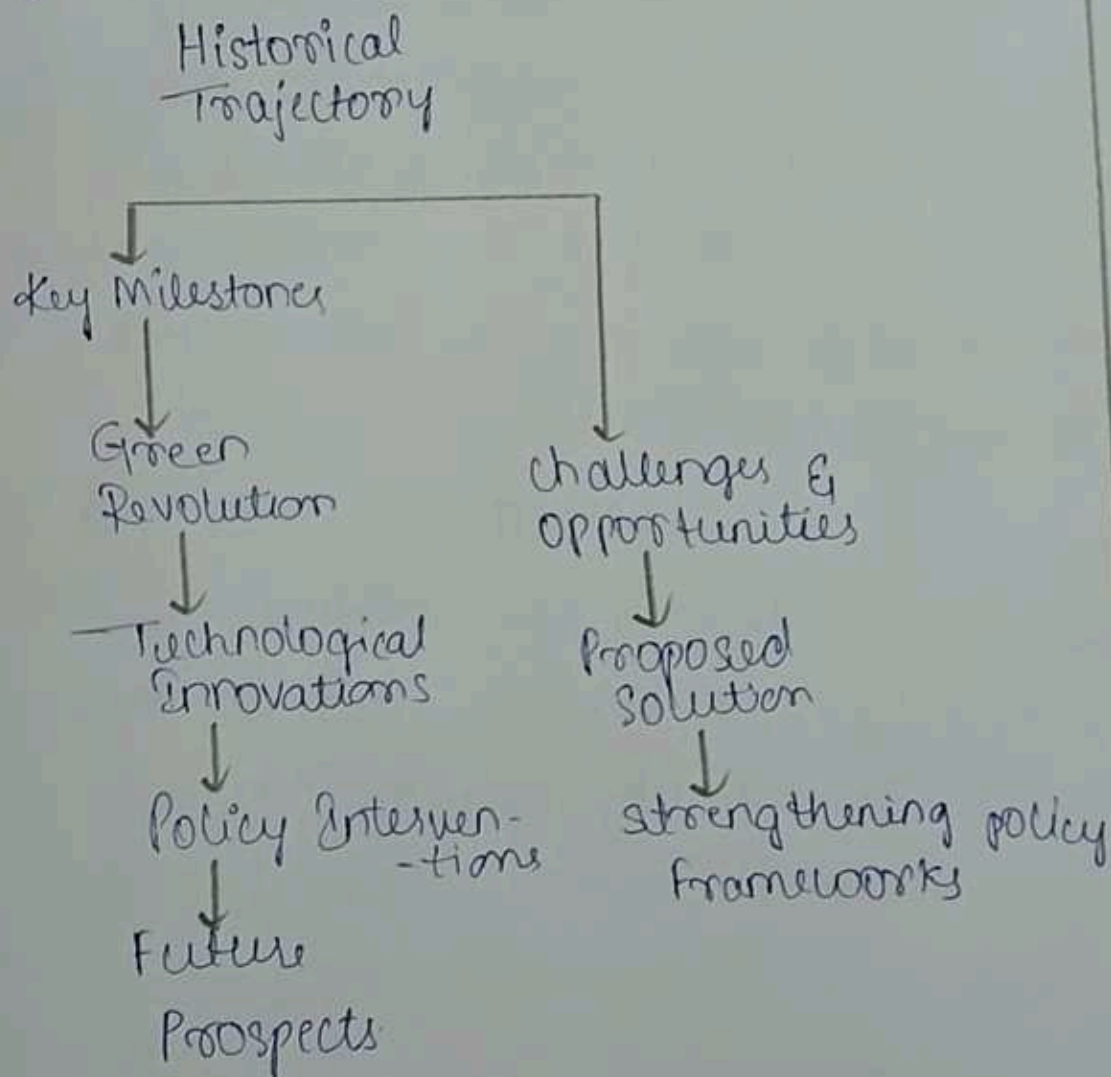 Historical
Trajectory
Key Milestones
Green
Revolution
Technological
Innovations
Policy Interven-
-tions
Future
Prospects
Challenges &
opportunities
Proposed
Solution
strengthening policy
frameworks